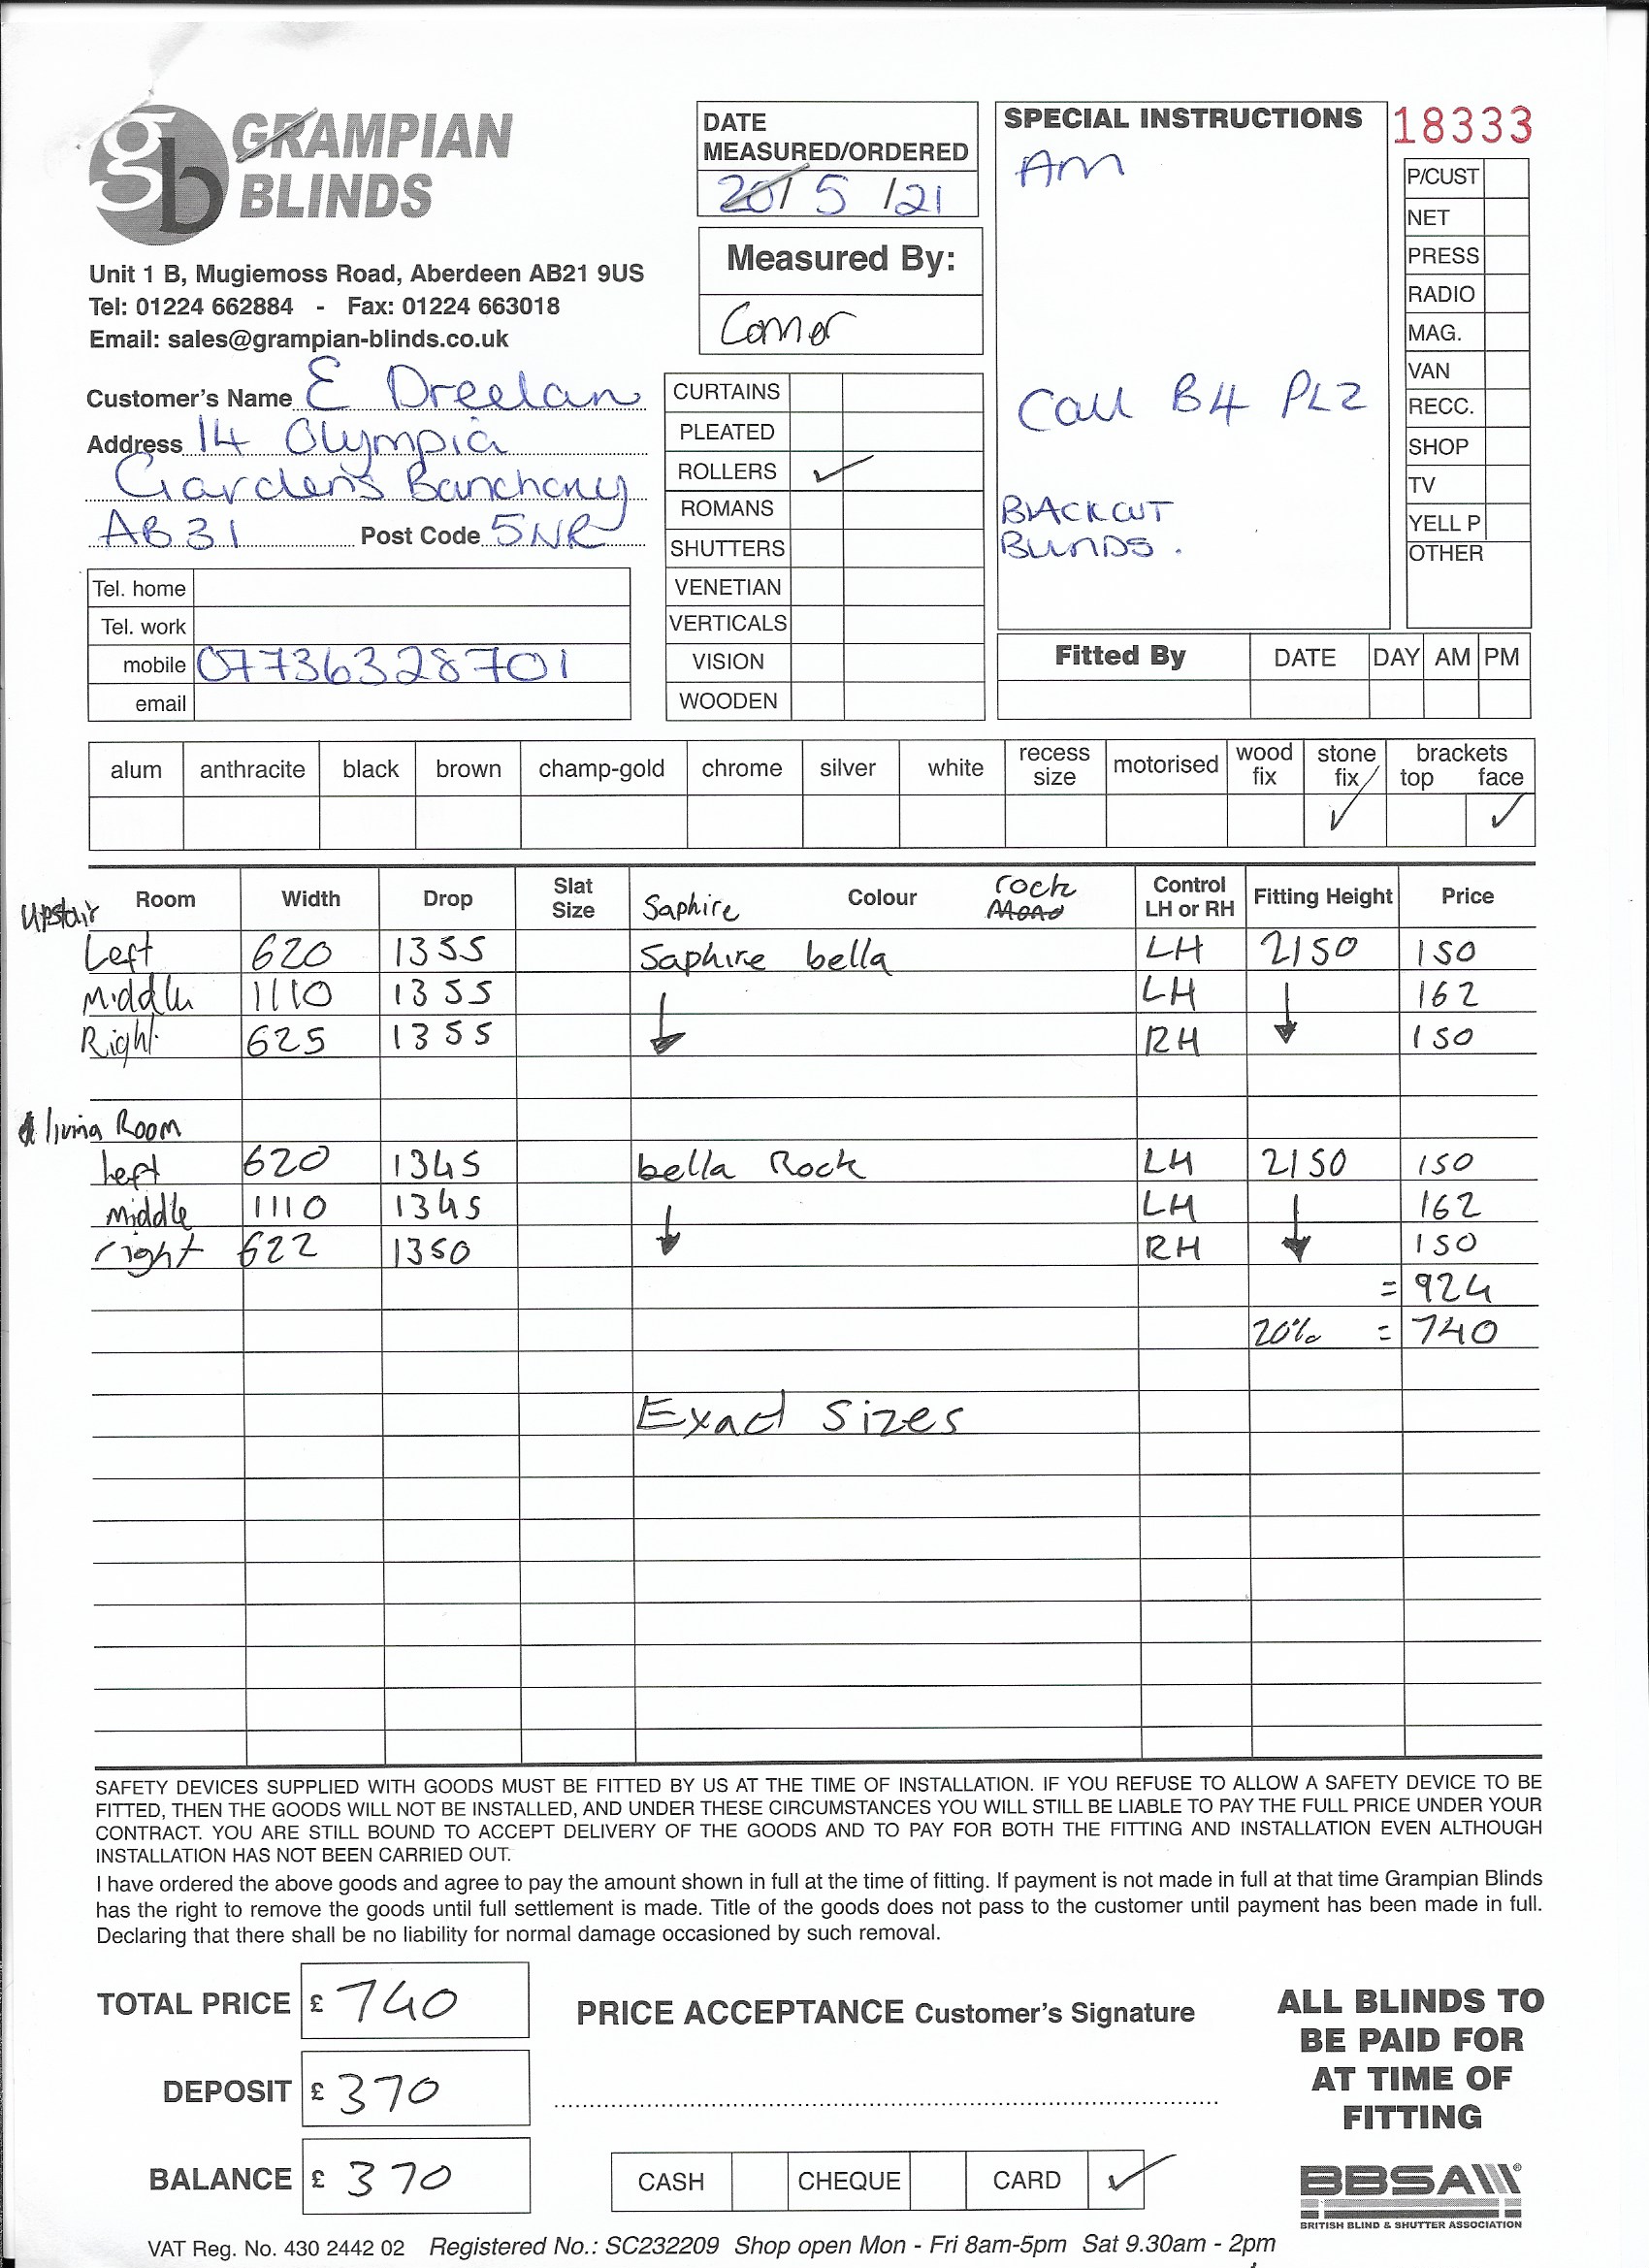 GRAMPIAN
BLINDS
Unit 1 B, Mugiemoss Road, Aberdeen AB21 9US
Tel: 01224 662884 - Fax: 01224 663018
Email: sales@grampian-blinds.co.uk
DATE
MEASURED/ORDERED
20/5/21
Measured By:
Connor
SPECIAL INSTRUCTIONS
AM
Call B4 PLZ
BLACKOUT
BLINDS.
18333
P/CUST
NET
PRESS
RADIO
MAG.
VAN
RECC.
SHOP
TV
YELL P
OTHER
Customer's Name E Dreelan
Address 14 Olympia
Gardens Banchory
AB31 Post Code 5NR
Tel. home
Tel. work
mobile 07736328701
email
CURTAINS
PLEATED
ROLLERS ✓
ROMANS
SHUTTERS
VENETIAN
VERTICALS
VISION
WOODEN
Fitted By DATE DAY AM PM
alum anthracite black brown champ-gold chrome silver white recess size motorised wood fix stone fix ✓ brackets top face ✓
Room Width Drop Slat Size Saphire Colour rock Mono Control LH or RH Fitting Height Price
Upstair
Left 620 1355 Saphire bella LH 2150 150
Middle 1110 1355 ↓ LH ↓ 162
Right 625 1355 RH 150
living Room
Left 620 1345 bella Rock LH 2150 150
Middle 1110 1345 ↓ LH ↓ 162
right 622 1350 RH 150
= 924
20% = 740
Exact Sizes
SAFETY DEVICES SUPPLIED WITH GOODS MUST BE FITTED BY US AT THE TIME OF INSTALLATION. IF YOU REFUSE TO ALLOW A SAFETY DEVICE TO BE
FITTED, THEN THE GOODS WILL NOT BE INSTALLED, AND UNDER THESE CIRCUMSTANCES YOU WILL STILL BE LIABLE TO PAY THE FULL PRICE UNDER YOUR
CONTRACT. YOU ARE STILL BOUND TO ACCEPT DELIVERY OF THE GOODS AND TO PAY FOR BOTH THE FITTING AND INSTALLATION EVEN ALTHOUGH
INSTALLATION HAS NOT BEEN CARRIED OUT.
I have ordered the above goods and agree to pay the amount shown in full at the time of fitting. If payment is not made in full at that time Grampian Blinds
has the right to remove the goods until full settlement is made. Title of the goods does not pass to the customer until payment has been made in full.
Declaring that there shall be no liability for normal damage occasioned by such removal.
TOTAL PRICE £ 740
DEPOSIT £ 370
BALANCE £ 370
PRICE ACCEPTANCE Customer's Signature
CASH CHEQUE CARD ✓
ALL BLINDS TO
BE PAID FOR
AT TIME OF
FITTING
BBSA
BRITISH BLIND & SHUTTER ASSOCIATION
VAT Reg. No. 430 2442 02 Registered No.: SC232209 Shop open Mon - Fri 8am-5pm Sat 9.30am - 2pm